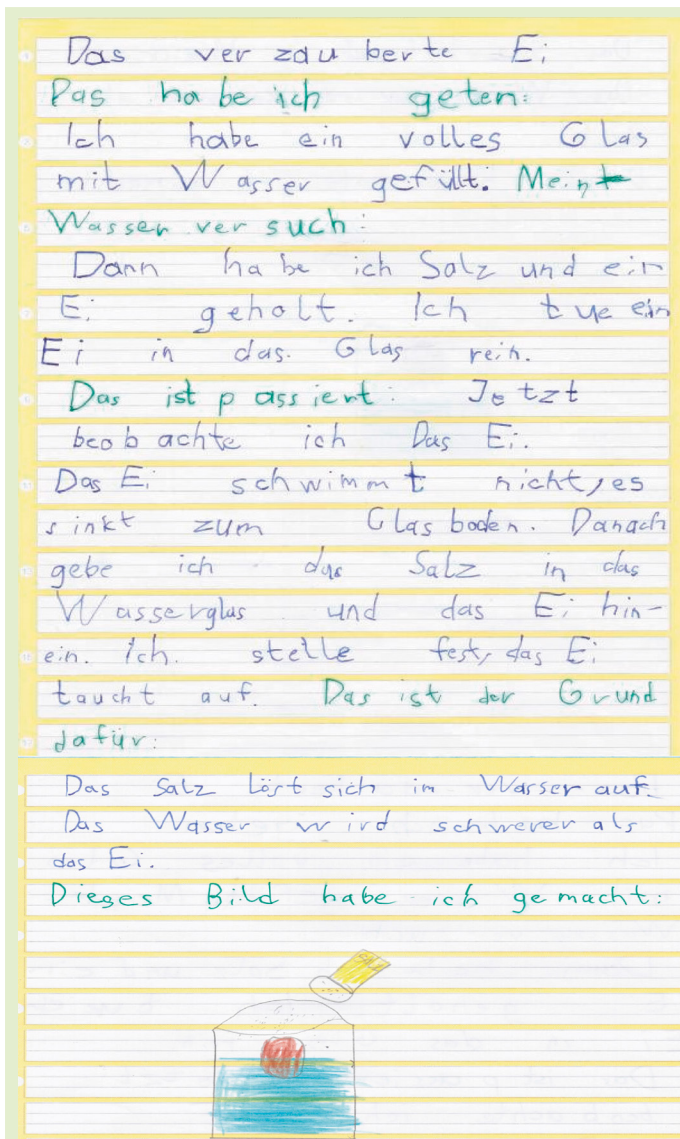 Das verzauberte Ei
Das habe ich geten:
Ich habe ein volles Glas
mit Wasser gefüllt. Mein
Wasserversuch:
Dann habe ich Salz und ein
Ei geholt. Ich tue ein
Ei in das. Glas rein.
Das ist passiert: Jetzt
beobachte ich Das Ei.
Das Ei schwimmt nicht, es
sinkt zum Glasboden. Danach
gebe ich das Salz in das
Wasserglas und das Ei hin-
ein. Ich. stelle fest, das Ei
taucht auf. Das ist der Grund
dafür:
Das Salz löst sich im Wasser auf.
Das Wasser wird schwerer als
das Ei.
Dieses Bild habe ich gemacht: